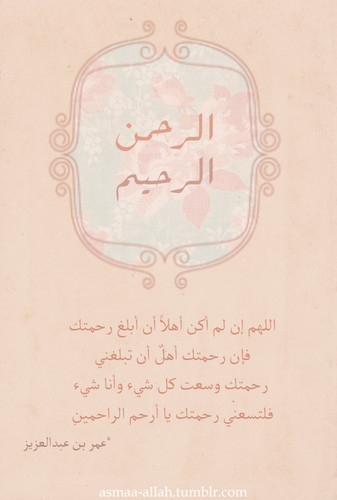 الرحمن
الرحيم
اللهم إن لم أكن أهلاً أن أبلغ رحمتك
فإن رحمتك أهلٌ أن تبلغني
رحمتك وسعت كل شيء وأنا شيء
فلتسعني رحمتك يا أرحم الراحمين
*عمر بن عبدالعزيز
asmaa-allah.tumblr.com